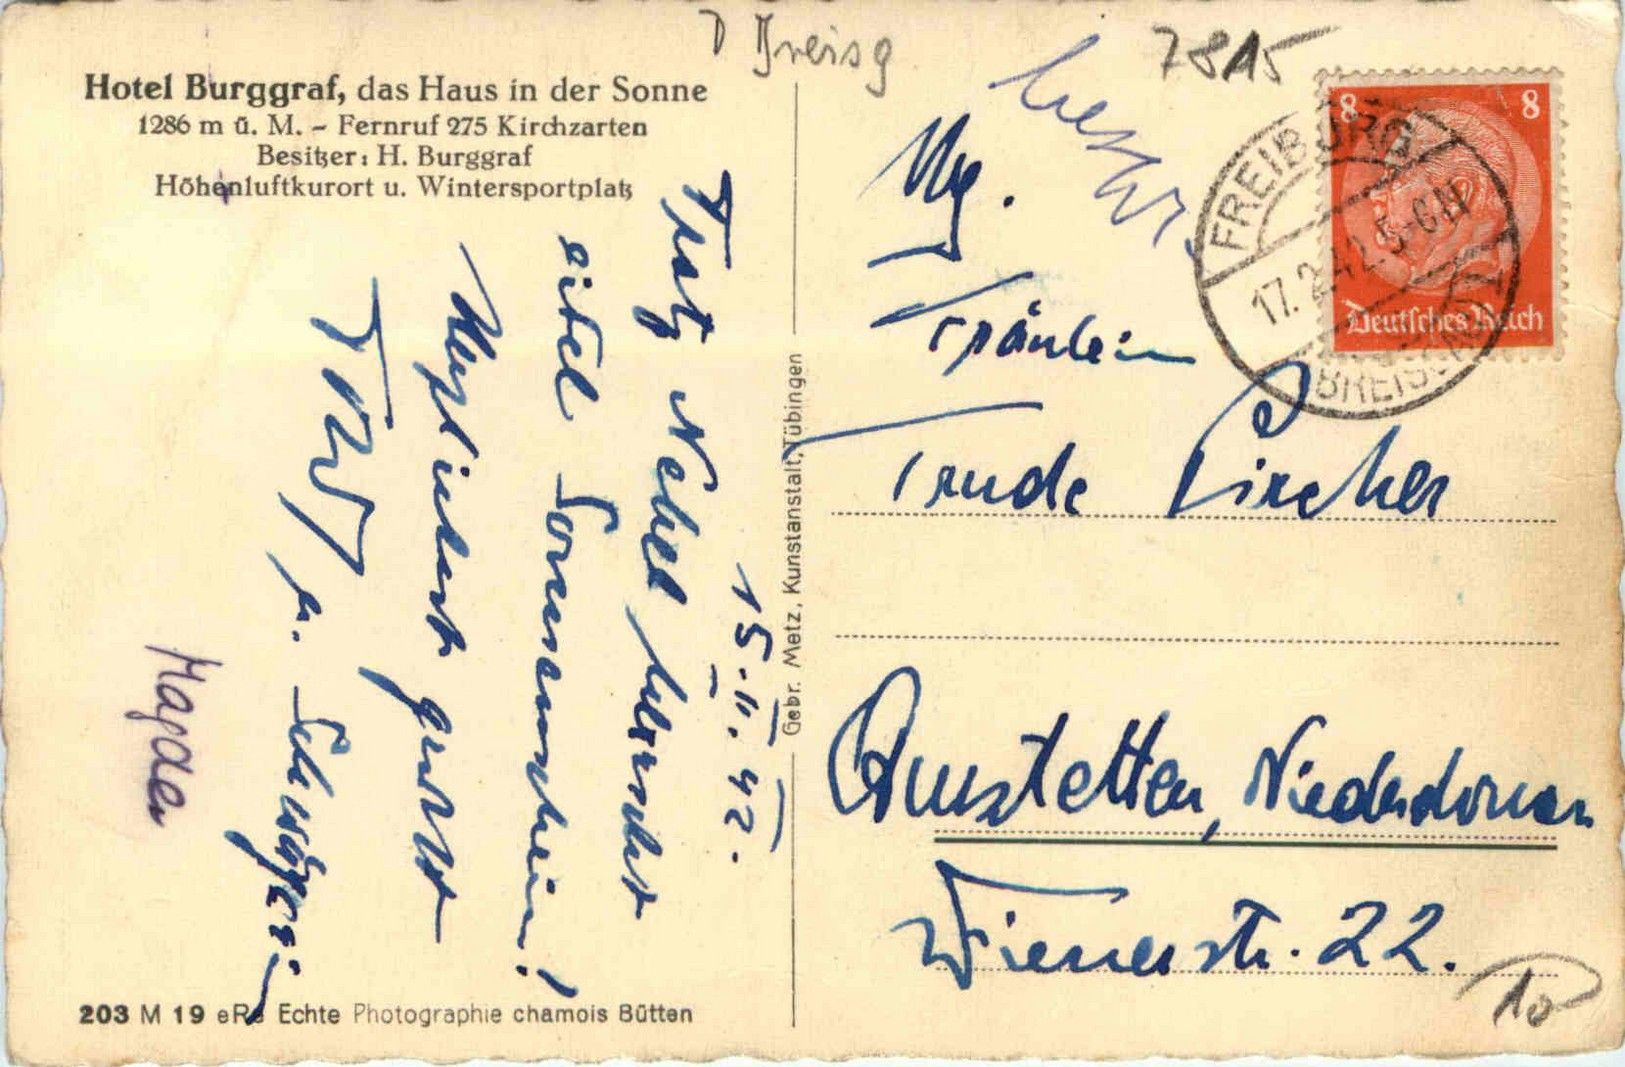 D Breisg
7815
beschr.
Hotel Burggraf, das Haus in der Sonne
1286 m ü. M. – Fernruf 275 Kirchzarten
Besitzer: H. Burggraf
Höhenluftkurort u. Wintersportplatz
15.II.42.
Trotz Nebel herrscht
eitel Sonnenschein!
Herzlichst grüsst
u.
Magden
203 M 19 Echte Photographie chamois Bütten
Gebr. Metz, Kunstanstalt, Tübingen
8 8
Deutsches Reich
FREIBURG
17.2.42.5-6N
BREISGAU
Fräulein
Trude Lircher
Amstetten, Niederdonau
Wienerstr. 22.
10